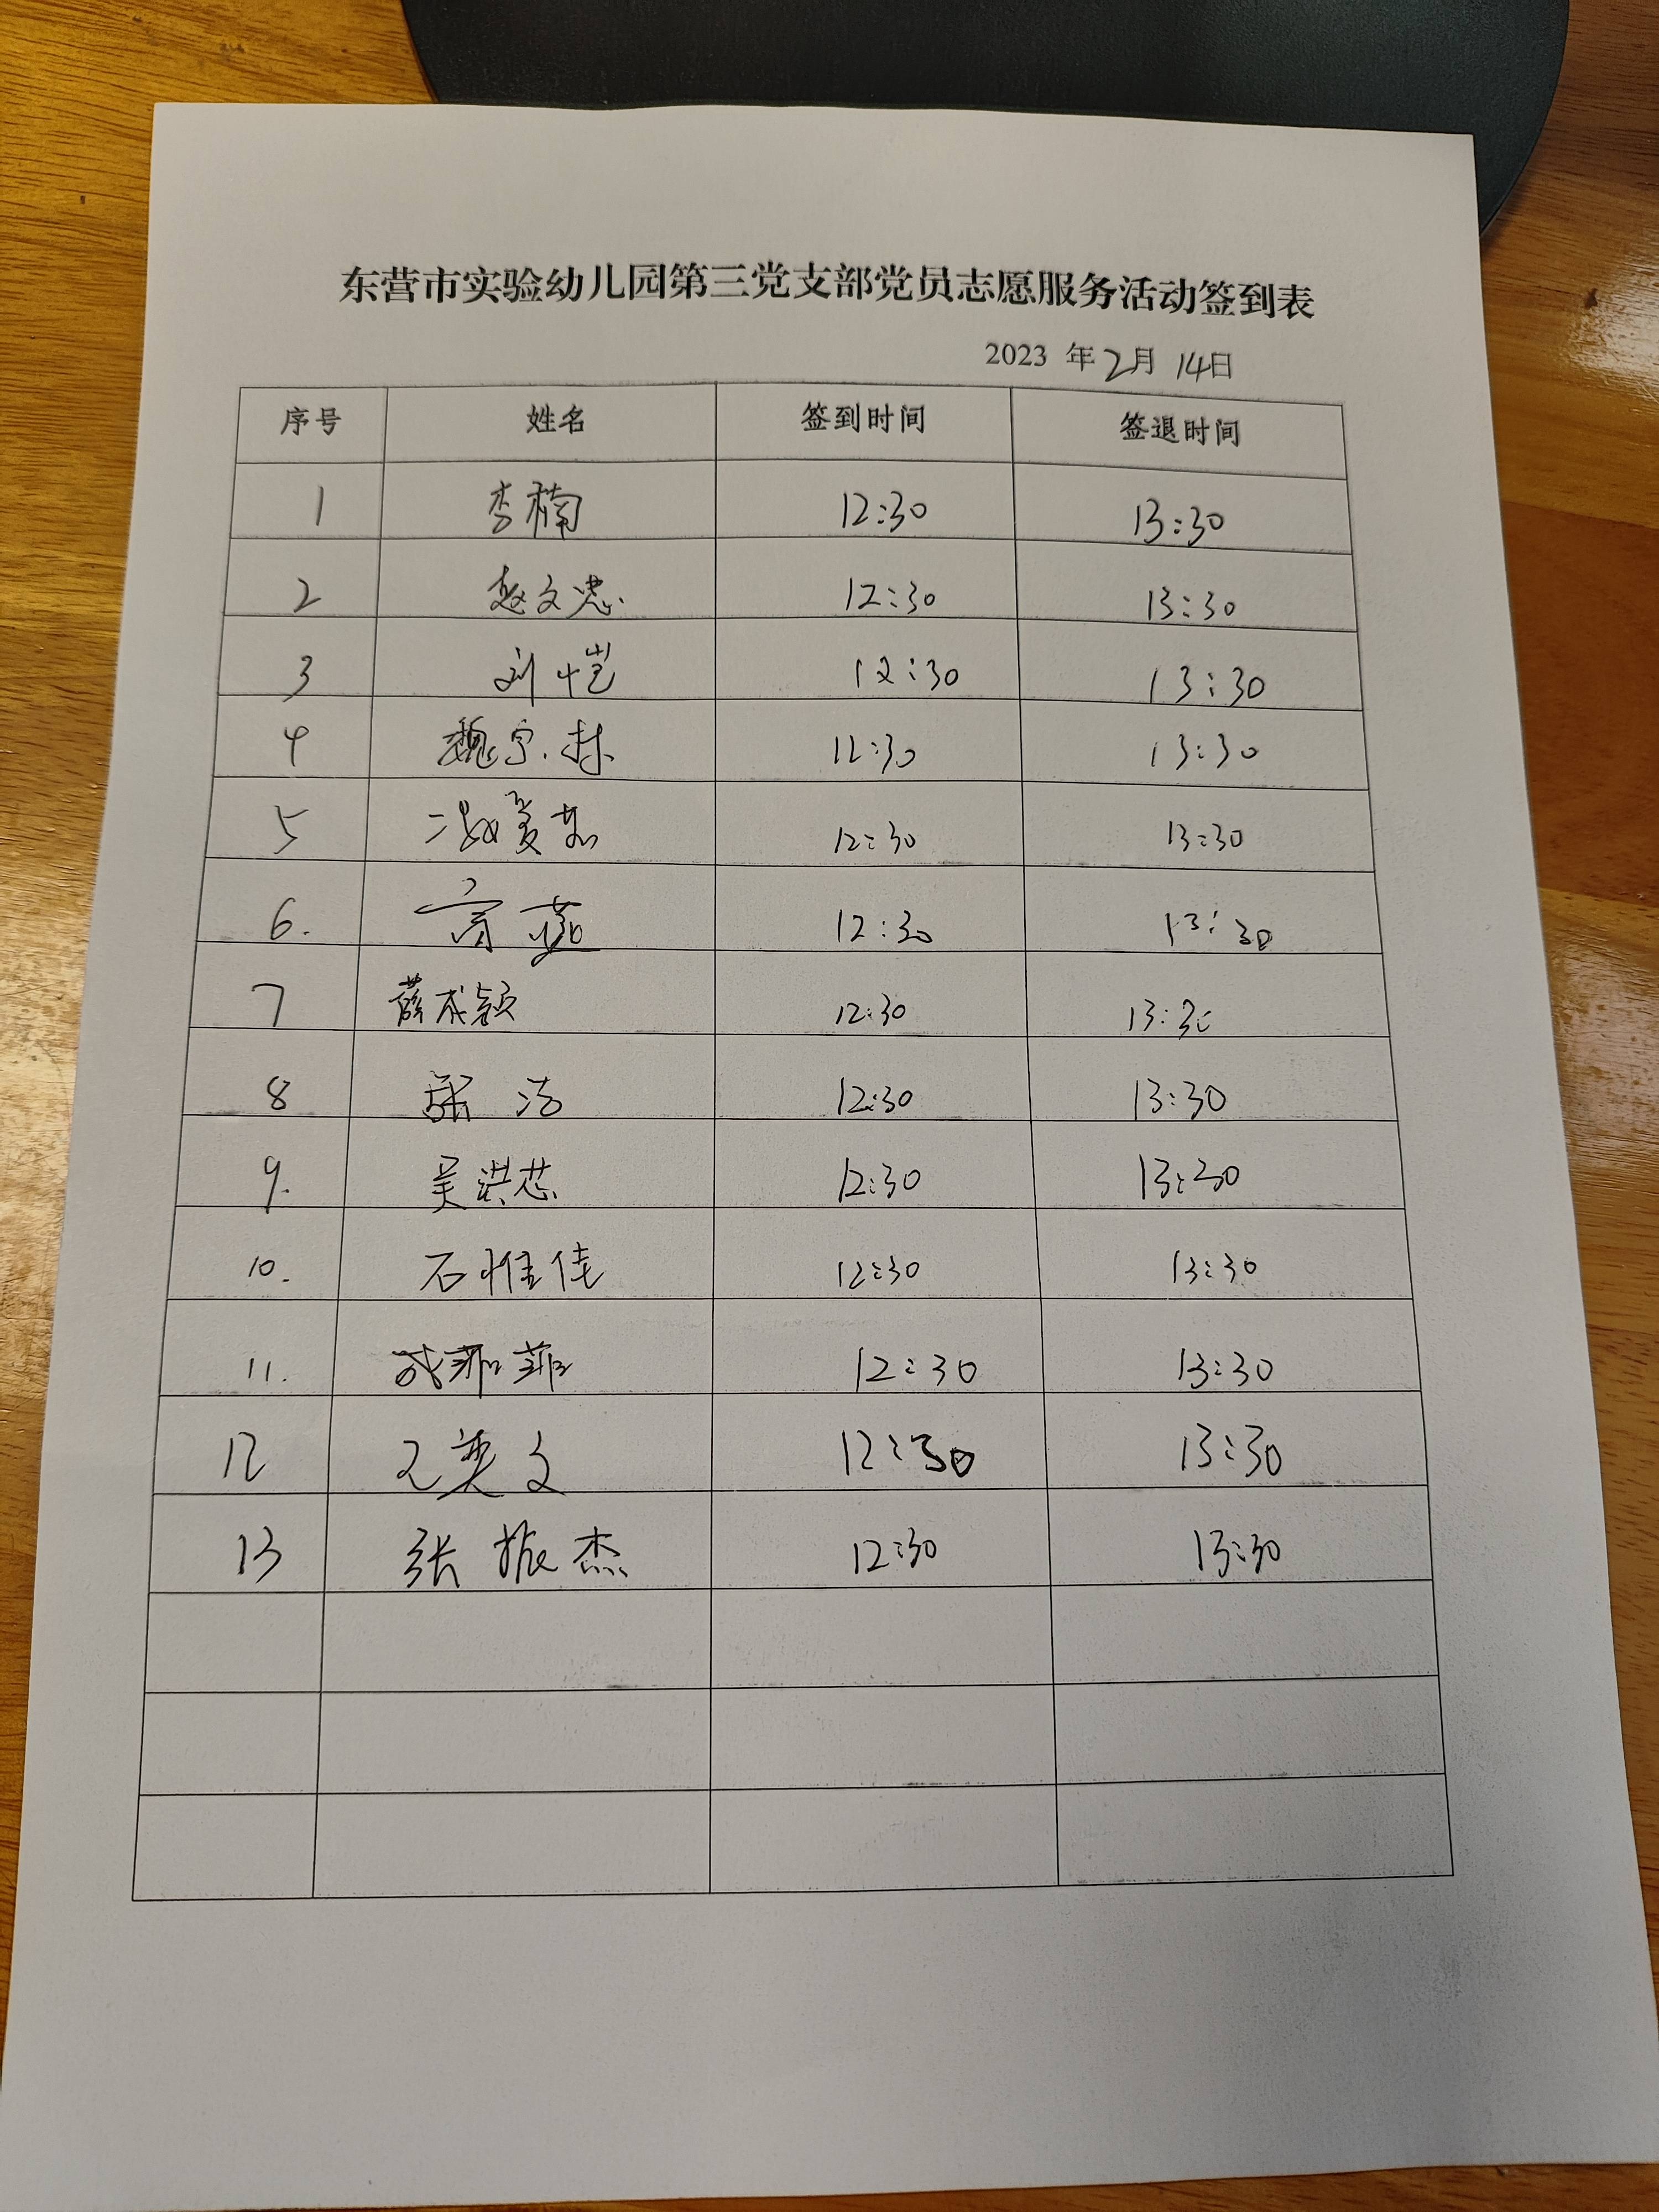 东营市实验幼儿园第三党支部党员志愿服务活动签到表
2023 年 2月 14日
序号 姓名 签到时间 签退时间
1 李楠 12:30 13:30
2 赵文忠 12:30 13:30
3 刘恺 12:30 13:30
4 魏宁 12:30 13:30
5 12:30 13:30
6. 高蕊 12:30 13:30
7 薛成颖 12:30 13:30
8 洁 12:30 13:30
9. 吴洪芯 12:30 13:30
10. 石惟佳 12:30 13:30
11. 菲菲 12:30 13:30
12 文 12:30 13:30
13 张振杰 12:30 13:30